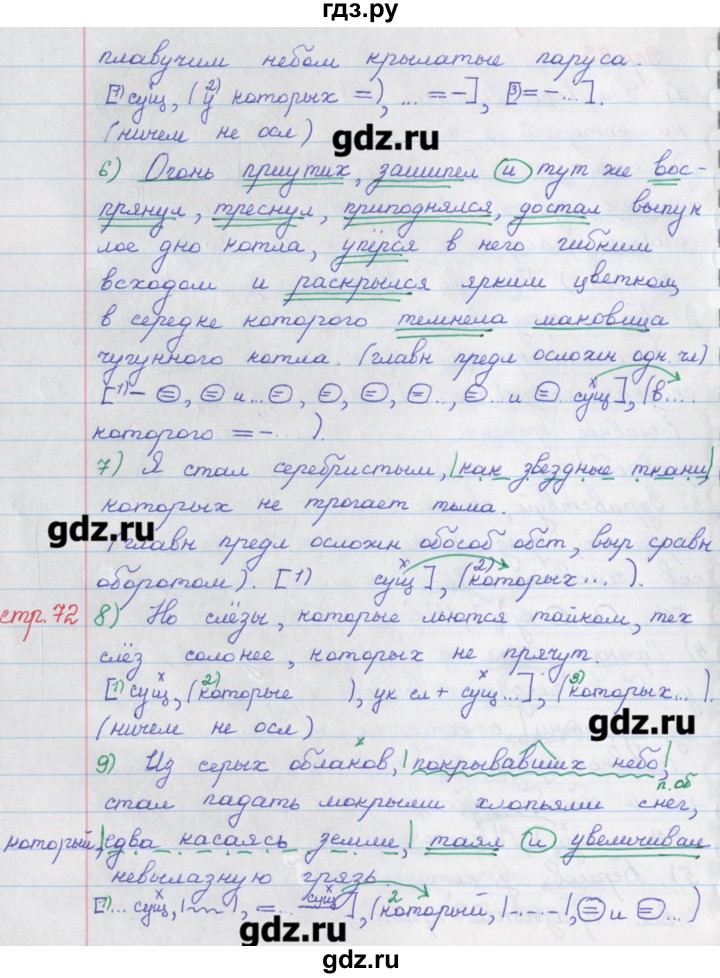 гдз.ру
плавучим небом крылатые паруса.
[1) сущ, (2) у которых =), ... = -], [3) = - ...].
(ничем не осл)
gdz.ru
6) Огонь приутих, зашипел и тут же вос-
прянул, треснул, приподнялся, достал выпук
лое дно котла, упёрся в него гибким
всходом и раскрылся ярким цветком,
в середке которого темнела маковица
чугунного котла. (главн предл осложн одн. чл)
[1) - =, = и ... =, =, =, =.., = ... и = сущ], (в ...
которого = - ... ).
7) Я стал серебристым, |как звездные ткани,|
которых не трогает тьма.
gdz.ru
(главн предл осложн обособ обст, выр сравн
оборотом). [1) сущ], (2) которых ... ).
стр. 72
8) Но слёзы, которые льются тайком, тех
слёз солонее, которых не прячут.
[1) сущ, (2) которые ), ук сл + сущ ...], (3) которых ...).
(ничем не осл)
gdz.ru
9) Из серых облаков, |покрывавших небо,|
п. об
стал падать мокрыми хлопьями снег,
который, |едва касаясь земли,| таял и увеличивал
невылазную грязь.
[1) ... сущ, |~~|, = ... сущ], (2 который, |-.-.-|, = и = ...)
gdz.ru
гдз.ру